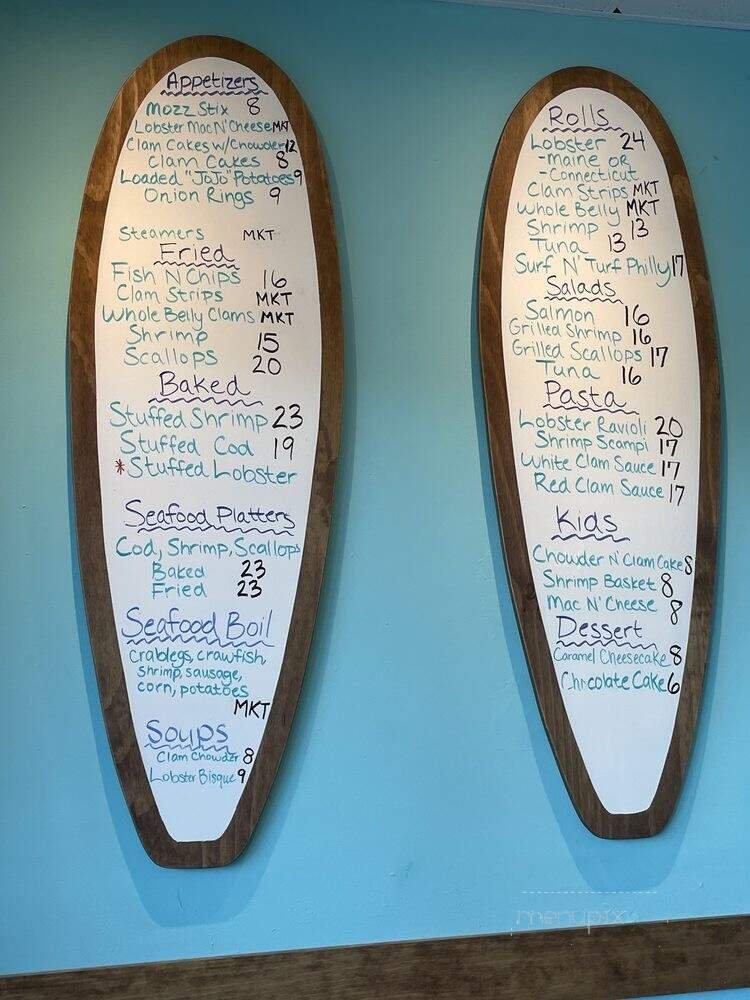 Appetizers
Mozz Stix 8
Lobster Mac N' Cheese MKT
Clam Cakes w/Chowder 12
Clam Cakes 8
Loaded "JoJo" Potatoes 9
Onion Rings 9
Steamers MKT
Fried
Fish N Chips 16
Clam Strips MKT
Whole Belly Clams MKT
Shrimp 15
Scallops 20
Baked
Stuffed Shrimp 23
Stuffed Cod 19
*Stuffed Lobster
Seafood Platters
Cod, Shrimp, Scallops
Baked 23
Fried 23
Seafood Boil
Crablegs, crawfish,
shrimp, sausage,
corn, potatoes
MKT
Soups
Clam Chowder 8
Lobster Bisque 9
Rolls
Lobster 24
-Maine or
-Connecticut
Clam Strips MKT
Whole Belly MKT
Shrimp 13
Tuna 13
Surf N' Turf Philly 17
Salads
Salmon 16
Grilled Shrimp 16
Grilled Scallops 17
Tuna 16
Pasta
Lobster Ravioli 20
Shrimp Scampi 17
White Clam Sauce 17
Red Clam Sauce 17
Kids
Chowder N' Clam Cake 8
Shrimp Basket 8
Mac N' Cheese 8
Dessert
Caramel Cheesecake 8
Chocolate Cake 6
menupix